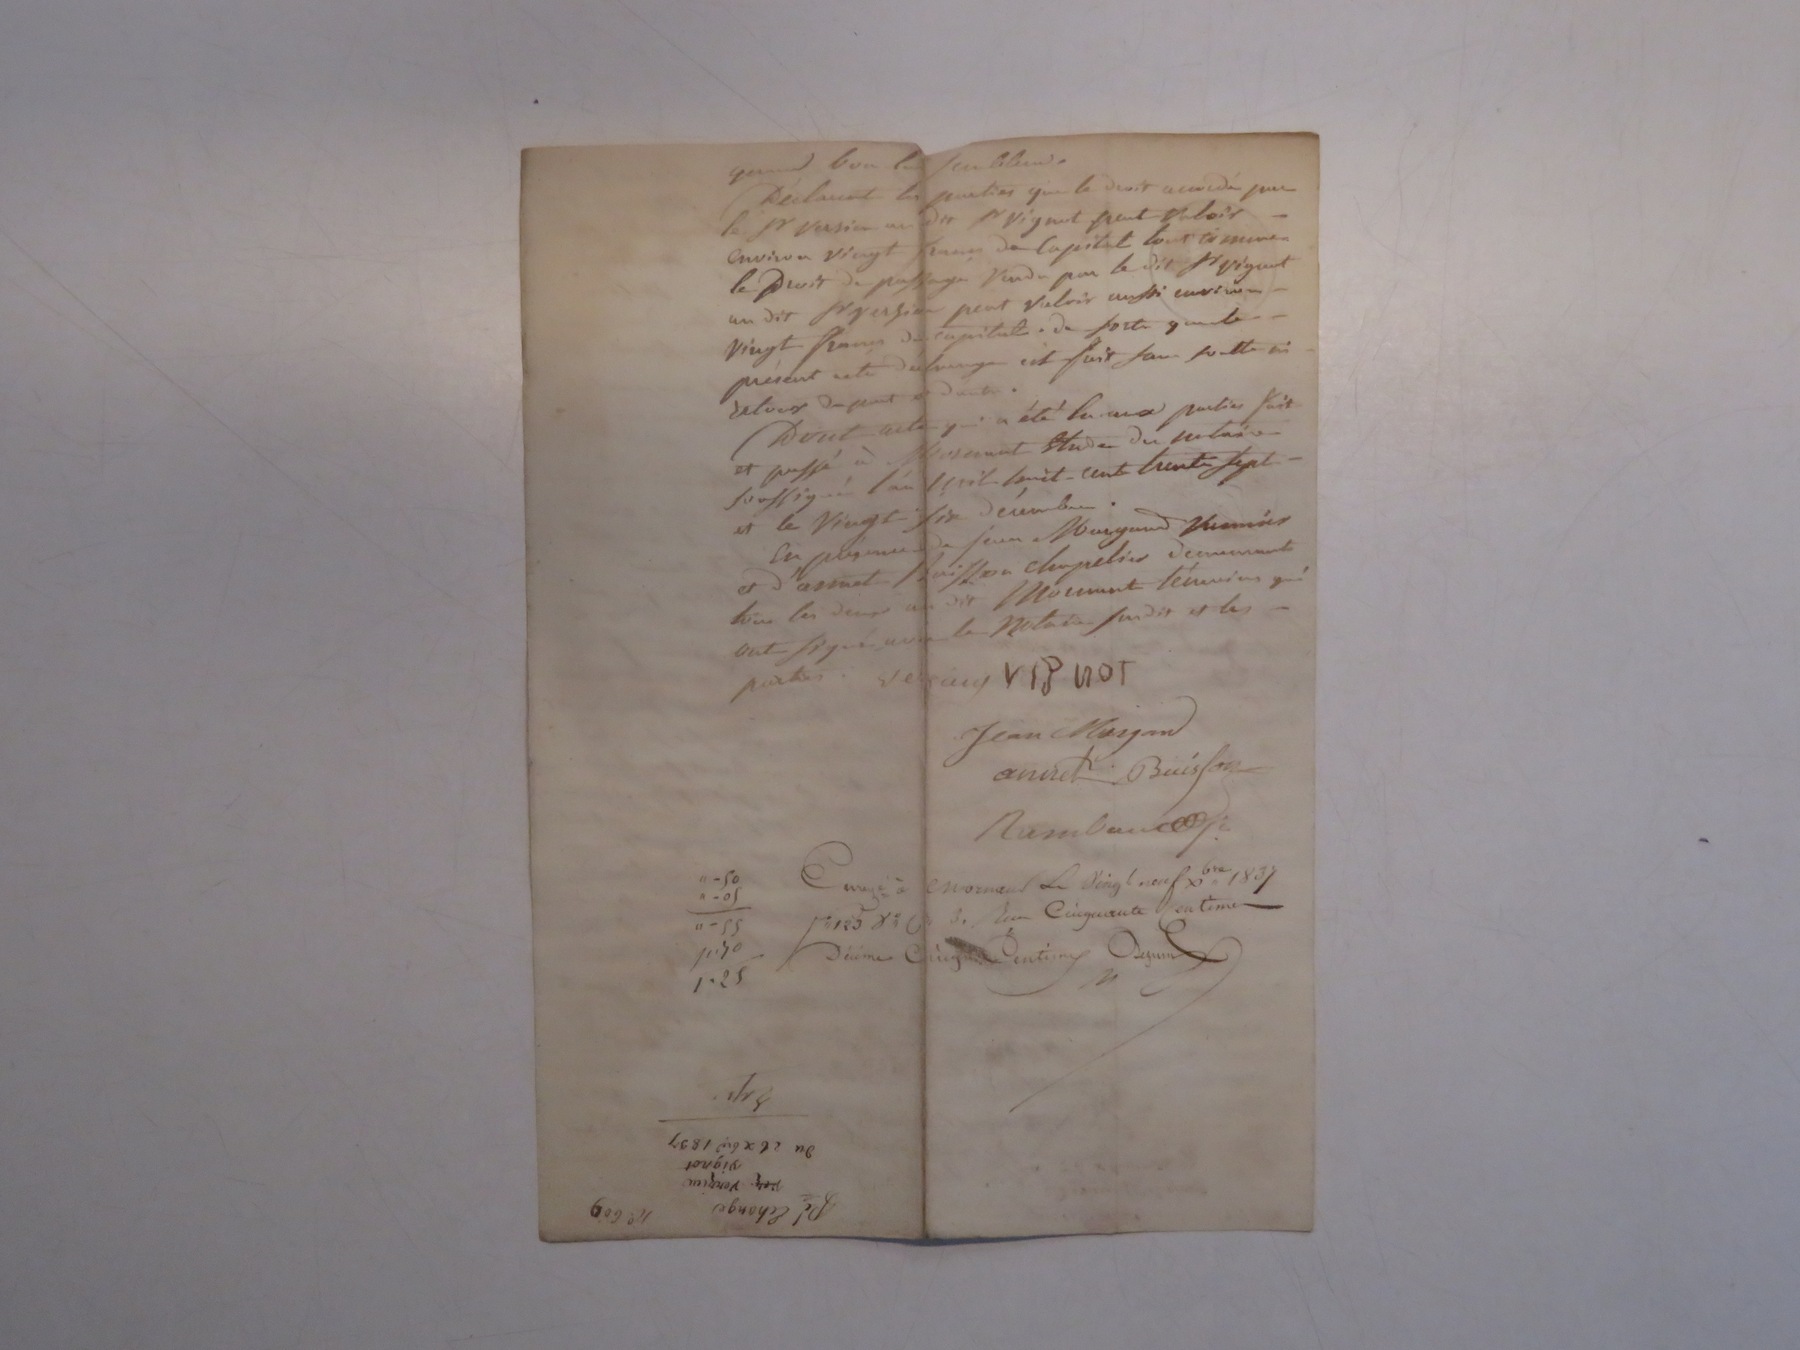 quand bon lui semblera.
Déclarent les parties que le droit accordé par
le Sr Versien au dit Sr Vignot peut valoir
environ vingt francs de capital tout comme
le Droit de passage vendu par le dit Sr Vignot
au dit Sr Versien peut valoir aussi environ
vingt francs de capital. de sorte que le
présent acte d'échange est fait sans soulte ni
retour de part et d'autre.
Dont acte qui a été lu aux parties fait
et passé à Mornant Etude du notaire
soussigné l'an Mil huit-cent trente sept
et le Vingt six décembre.
En présence de Jean Morgand
et d'annet Buisson chapelier demeurant
tous les deux au dit Mornant témoins qui
ont signé avec le Notaire susdit et les
parties. VIGNOT
Jean Morgand
annet Buisson
à Mornant Le Vingt neuf Xbre 1837
fo 123 Cinquante centimes
Décime Cinq Centimes
" - 50
" - 05
" - 55
1 - 25
No 609
Echange
Vignot
Du 26 xbre 1837